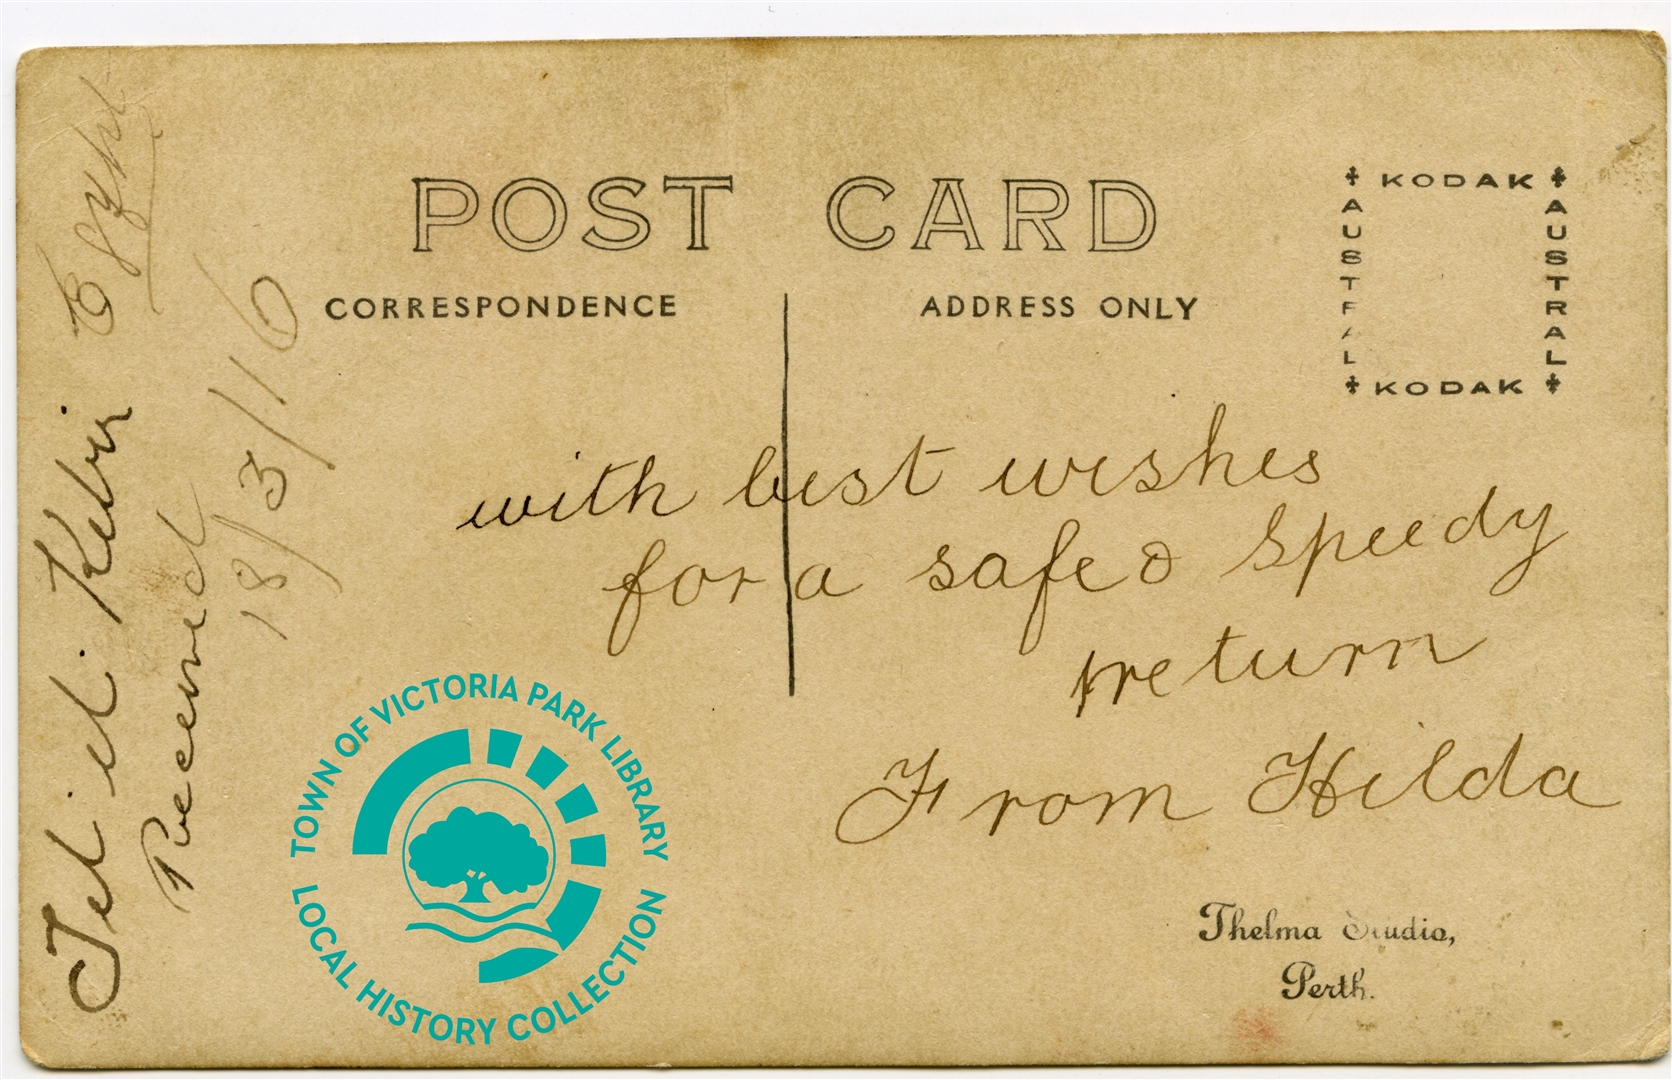 POST CARD
CORRESPONDENCE
ADDRESS ONLY
KODAK
AUSTRAL
AUSTRAL
KODAK
with best wishes
for a safe & Speedy
return
From Hilda
Thelma Studio,
Perth.
Tel el Kebir Egypt
Received
18/3/16
TOWN OF VICTORIA PARK LIBRARY
LOCAL HISTORY COLLECTION